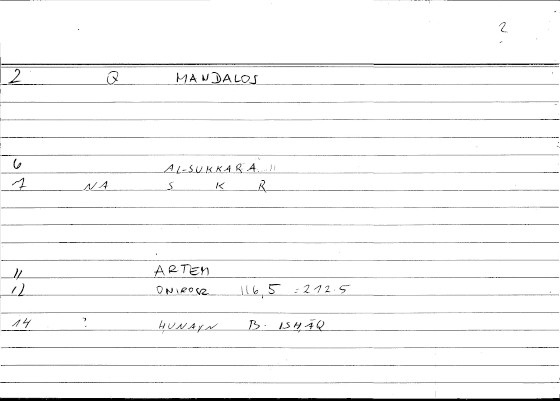 2
2 Q MANDALOS
6 AL-SUKKARA
7 NA S K R
11 ARTEM
12 ONIROCR 116,5 = 212.5
14 ? ḤUNAYN B. ISḤĀQ